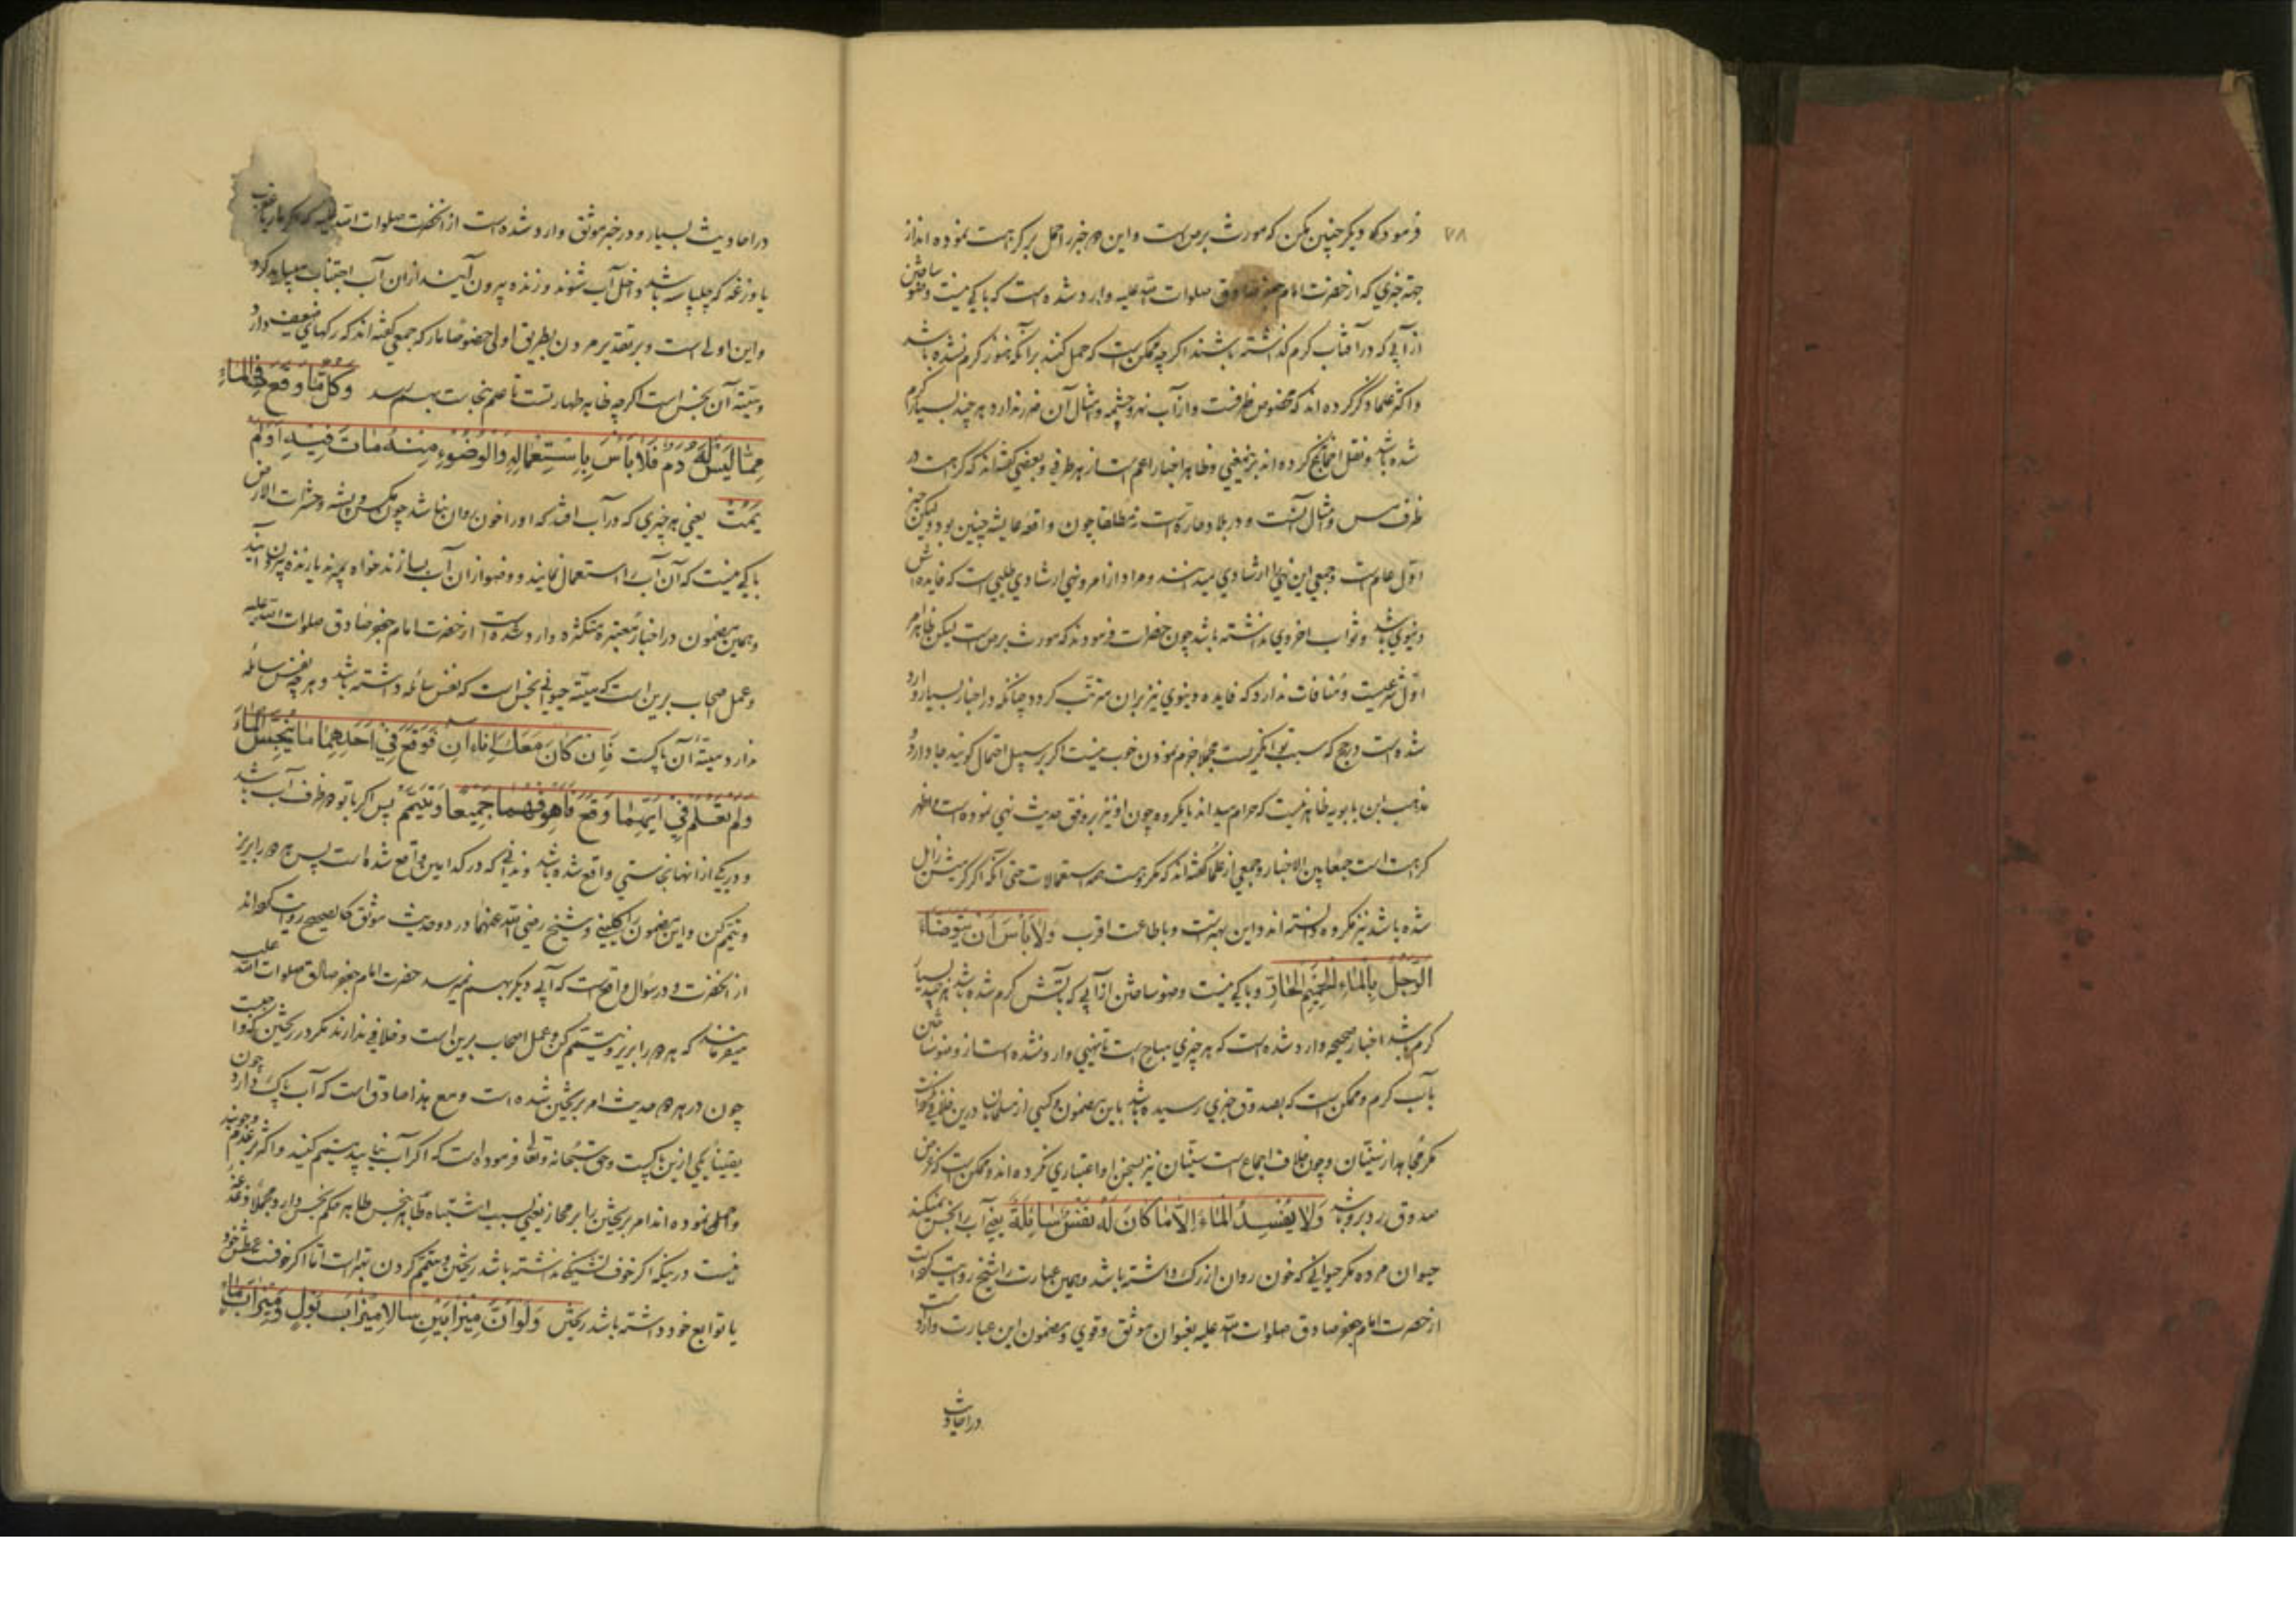 ۷۸
فرمودند که دیگر چنین مکن که مورث برص است و این دو خبر را حمل بر کراهت نموده‌اند از
جهة خبری که از حضرت امام جعفر صادق صلوات الله علیه وارد شده است که باکی نیست وضو ساختن
از آبی که در آفتاب گرم گذاشته باشند اگرچه ممکن است که حمل کنند بر آنکه هنوز گرم نشده باشد
و اکثر علما ذکر کرده‌اند که مخصوص ظرفست و از آب نهر و چشمه و امثال آن ضرر ندارد هر چند بسیار گرم
شده باشد و نقل اجماع کرده‌اند برینمعنی و ظاهر اخبار اعم است از هر ظرفی و بعضی گفته‌اند که کراهت در
ظرف مس و امثال آنست و در بلاد حاره است نه مطلقا چون واقعه عایشه چنین بود و لیکن خبر
اول عام است و جمعی این نهی را ارشادی میدانند و مراد از امر و نهی ارشادی طلبی است که فایده‌اش
دنیوی باشد و ثواب اخروی نداشته باشد چون حضرات فرمودند که مورث برص است لیکن ظاهر امر
اول شرعیست و منافات ندارد که فایده دنیوی نیز بر ان مترتب گردد چنانکه در اخبار بسیار وارد
شده است در حج که سبب توانگریست مجملا جزم نمودن خوب نیست اگر بر سبیل احتمال گویند جا دارد و
مذهب ابن بابویه ظاهر نیست که حرام میداند یا مکروه چون او نیز بر وفق حدیث نهی نموده است و اظهر
کراهت است جمعا بین الاخبار و جمعی از علما گفته‌اند که مکروهست همه استعمالات حتی آنکه اگر گرمیش زایل
شده باشد نیز مکروه دانسته‌اند و این بهتر است و باطاعت اقرب وَلَا بَأْسَ اَنْ يَتَوَضَّاءَ
الرَّجُلُ بِالْمَاءِ الْحَمِيْمِ الْحَارِّ و باکی نیست وضو ساختن از آبی که بآتش گرم شده باشد هر چند بسیار
گرم باشد اخبار صحیحه وارد شده است که هر چیزی مباح است تا نهیی وارد نشده است از وضو ساختن
بآب گرم و ممکن است که بصدوق خبری رسیده باشد باین مضمون و کسی از مسلمانان درین خلافی نکرده است
مگر مجاهد از سنیان و چون خلاف اجماع است سنیان نیز بسخن او اعتباری نکرده‌اند و ممکن است که غرض
صدوق رد برو باشد وَلَا يُفْسِدُ الْمَاءَ اِلَّا مَا كَانَ لَهُ نَفْسٌ سَائِلَةٌ یعنی آب را نجس نمیکند
حیوان مرده مگر حیوانی که خون روان از رگ داشته باشد و همین عبارت را شیخ روایت کرده است
از حضرت امام جعفر صادق صلوات الله علیه بعنوان موثق و قوی و مضمون این عبارت وارد است
در احادیث
در احادیث بسیار و در خبر موثق وارد شده است از آنحضرت صلوات الله علیه که اگر مار یا عقرب
یا وزغه که چلپاسه باشد داخل آب شوند و زنده بیرون آیند از ان آب اجتناب میباید کرد
و این اولی است و بر تقدیر مردن بطریق اولی خصوصا مار که جمعی گفته‌اند که رگهای ضعیف دارد
و میتة آن نجس است اگرچه ظاهر طهارتست تا علم بنجاست بهم رسد وَكُلُّ مَا وَقَعَ فِي الْمَاءِ
مِمَّا لَيْسَ لَهُ دَمٌ فَلَا بَأْسَ بِاسْتِعْمَالِهِ وَالْوُضُوْءِ مِنْهُ مَاتَ فِيْهِ اَوْ لَمْ
يَمُتْ یعنی هر چیزی که در آب افتد که او را خون روان نباشد چون مگس و پشه و حشرات الارض
باکی نیست که آن آب را استعمال نمایند و وضو از ان آب بسازند خواه بمیرند یا زنده بیرون آیند
و همین مضمون در اخبار معتبره متکثره وارد شده است از حضرت امام جعفر صادق صلوات الله علیه
و عمل اصحاب برین است که میتة حیوانی نجس است که نفس سائله داشته باشد و هر چه نفس سائله
ندارد میتة آن پاکست فَاِنْ كَانَ مَعَكَ اِنَاءَانِ فَوَقَعَ فِيْ اَحَدِهِمَا مَا يُنَجِّسُ الْمَاءَ
وَلَمْ تَعْلَمْ فِيْ اَيِّهِمَا وَقَعَ فَاَهْرِقْهُمَا جَمِيْعًا وَتَيَمَّمْ پس اگر با تو دو ظرف آب باشد
و در یکی از انها نجاستی واقع شده باشد و ندانی که در کدامین واقع شده است پس هر دو را بریز
و تیمم کن و این مضمون را کلینی و شیخ رضی الله عنهما در دو حدیث موثق کالصحیح روایت کرده‌اند
از آنحضرت و در سؤال واقع است که آبی دیگر بهم نمیرسد حضرت امام جعفر صادق صلوات الله علیه
میفرمایند که هر دو را بریز و تیمم کن و عمل اصحاب برین است و خلافی ندارند مگر در ریختن که واجبست
چون در هر دو حدیث امر بریختن شده است و مع هذا صادق است که آب پاک دارد چون
یقینا یکی ازین پاکست و حق سبحانه و تعالی فرموده است که اگر آب نیابید تیمم کنید و اکثر بر عدم وجوبند
و حمل نموده‌اند امر بریختن را بر مجاز یعنی بسبب اشتباه طاهر بنجس طاهر حکم نجس دارد و مجملا دغدغه
نیست در اینکه اگر خوف تشنگی نداشته باشد ریختن و تیمم کردن بهتر است اما اگر خوف عطش خود
یا توابع خود داشته باشد نریختن وَلَوْ اَنَّ مِيْزَابَيْنِ سَالَا مِيْزَابُ بَوْلٍ وَمِيْزَابُ مَاءٍ